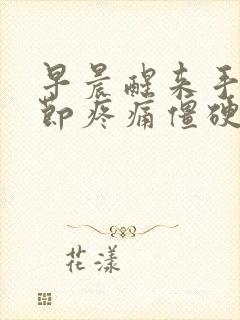 早晨醒来手
节疼痛僵硬
花漾